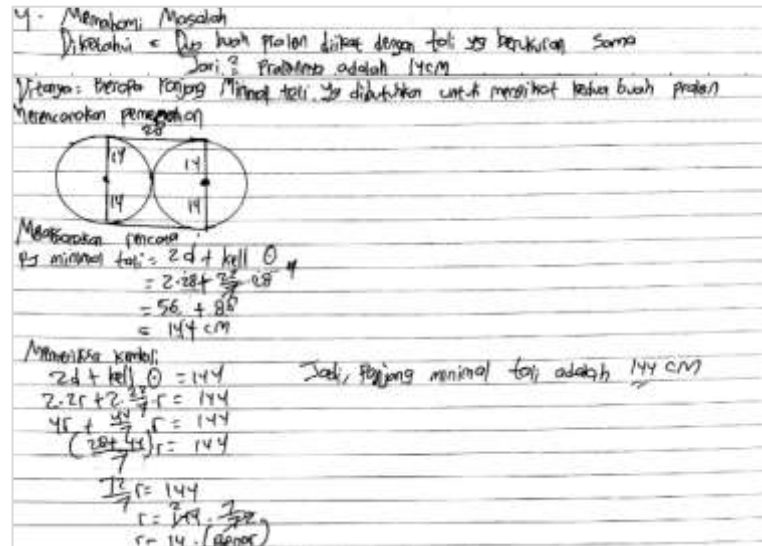 4. Memahami Masalah
Diketahui = Dua buah pralon diikat dengan tali yg berukuran sama
Jari² Pralonnya adalah 14cm
Ditanya: Berapa Panjang Minimal tali yg dibutuhkan untuk mengikat kedua buah pralon
Merencanakan pemecahan
28
14 14
14 14
rencana
Pj minimal tali = 2d + kell O
= 2.28 + 22/7 . 28
= 56 + 88
= 144 cm
Memeriksa kembali
2d + kell O = 144
2.2r + 2.22/7 r = 144
4r + 44/7 r = 144
(28+44/7) r = 144
72/7 r = 144
r = 144 . 7/72
r = 14 . (Benar)
Jadi, Panjang minimal tali adalah 144 cm